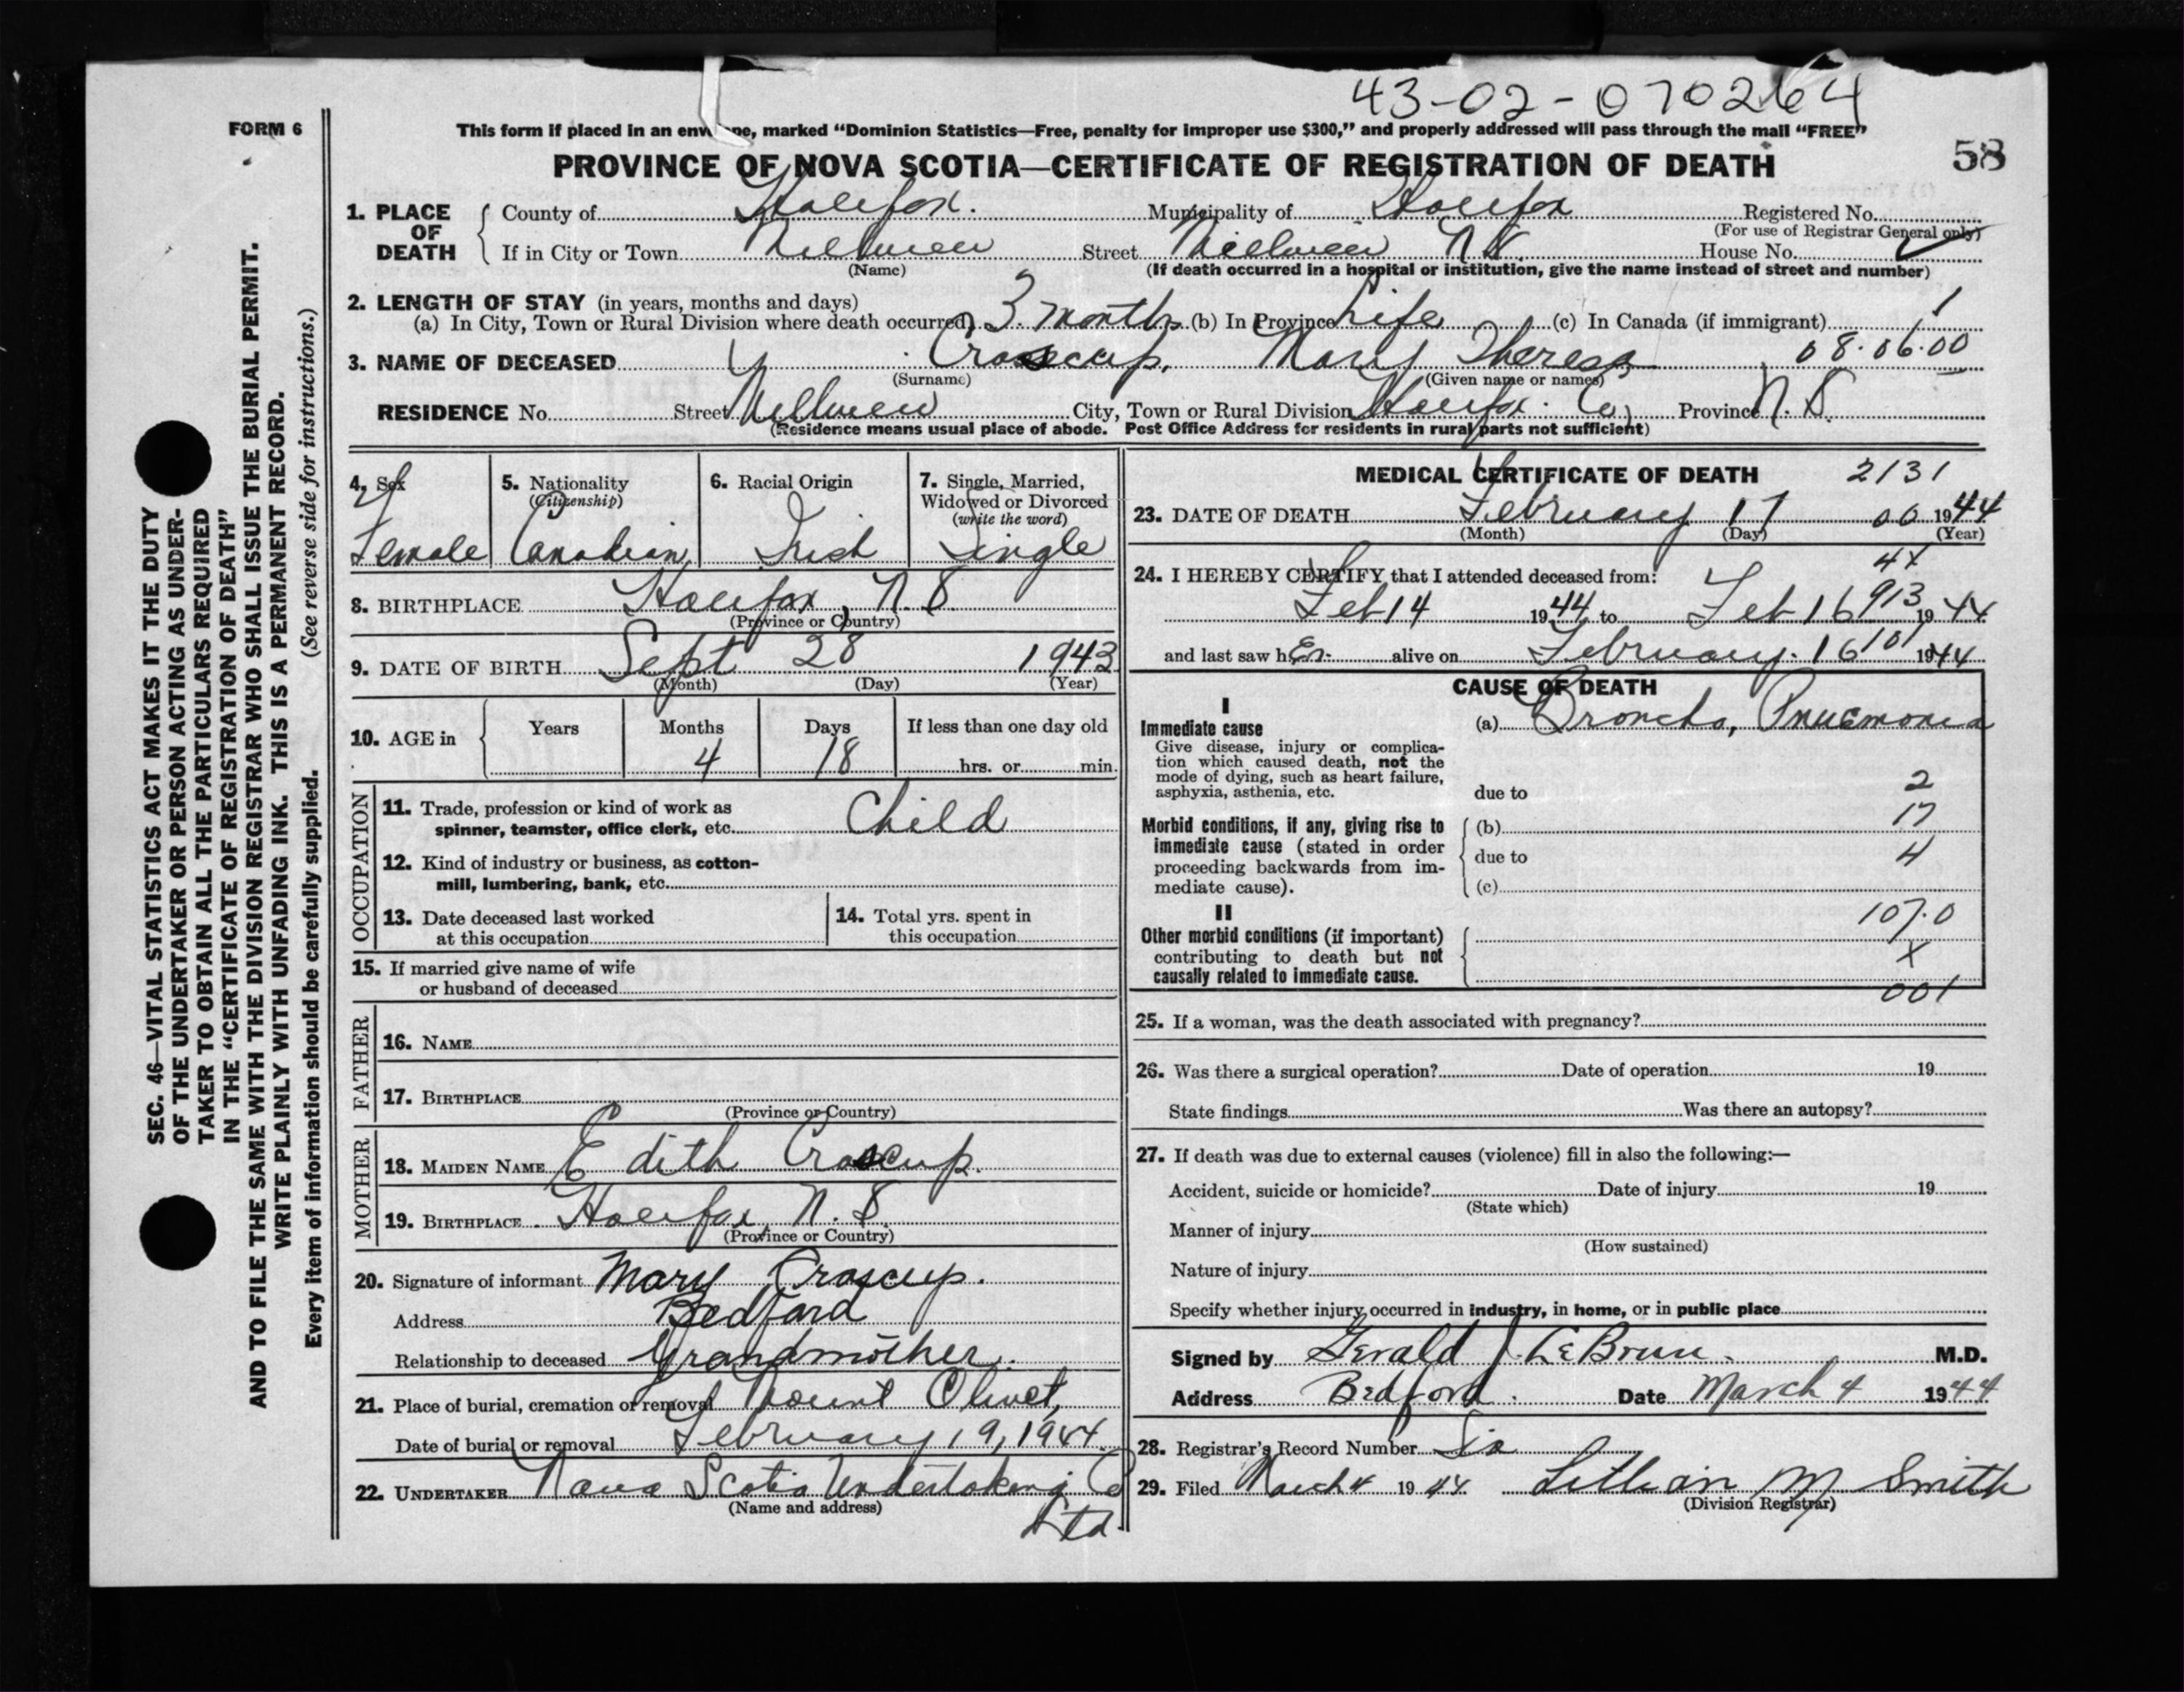 43-02-070264
FORM 6
This form if placed in an envelope, marked "Dominion Statistics—Free, penalty for improper use $300," and properly addressed will pass through the mail "FREE"
PROVINCE OF NOVA SCOTIA—CERTIFICATE OF REGISTRATION OF DEATH
58
1. PLACE OF DEATH
County of Halifax. Municipality of Halifax Registered No.
(For use of Registrar General only)
If in City or Town Millview Street Millview N.S. House No.
(Name) (If death occurred in a hospital or institution, give the name instead of street and number)
2. LENGTH OF STAY (in years, months and days)
(a) In City, Town or Rural Division where death occurred 3 months (b) In Province Life (c) In Canada (if immigrant) 1
3. NAME OF DECEASED Croscup, Mary Theresa 08.06.00
(Surname) (Given name or names)
RESIDENCE No. Street Millview City, Town or Rural Division Halifax Co, Province N.S.
(Residence means usual place of abode. Post Office Address for residents in rural parts not sufficient)
4. Sex
Female
5. Nationality
(Citizenship)
Canadian
6. Racial Origin
Irish
7. Single, Married,
Widowed or Divorced
(write the word)
Single
8. BIRTHPLACE Halifax, N.S.
(Province or Country)
9. DATE OF BIRTH Sept 28 1943
(Month) (Day) (Year)
10. AGE in
Years Months Days If less than one day old
4 18 hrs. or min.
OCCUPATION
11. Trade, profession or kind of work as
spinner, teamster, office clerk, etc. Child
12. Kind of industry or business, as cotton-
mill, lumbering, bank, etc.
13. Date deceased last worked
at this occupation
14. Total yrs. spent in
this occupation
15. If married give name of wife
or husband of deceased
FATHER
16. NAME
17. BIRTHPLACE
(Province or Country)
MOTHER
18. MAIDEN NAME Edith Croscup.
19. BIRTHPLACE Halifax, N.S.
(Province or Country)
20. Signature of informant Mary Croscup.
Address Bedford
Relationship to deceased Grandmother.
21. Place of burial, cremation or removal Mount Olivet,
Date of burial or removal February 19, 1944.
22. UNDERTAKER Nova Scotia Undertaking Co
(Name and address)
Ltd.
MEDICAL CERTIFICATE OF DEATH 2131
23. DATE OF DEATH February 17 00 1944
(Month) (Day) (Year)
24. I HEREBY CERTIFY that I attended deceased from: 4x
Feb 14 1944 to Feb 16 913 1944
and last saw her alive on February. 16 101 1944
CAUSE OF DEATH
I
Immediate cause (a) Broncho, Pnuemonia
Give disease, injury or complica-
tion which caused death, not the
mode of dying, such as heart failure,
asphyxia, asthenia, etc. due to 2
Morbid conditions, if any, giving rise to (b) 17
immediate cause (stated in order due to 4
proceeding backwards from im-
mediate cause). (c)
II 107.0
Other morbid conditions (if important)
contributing to death but not X
causally related to immediate cause.
001
25. If a woman, was the death associated with pregnancy?
26. Was there a surgical operation? Date of operation 19
State findings Was there an autopsy?
27. If death was due to external causes (violence) fill in also the following:—
Accident, suicide or homicide? Date of injury 19
(State which)
Manner of injury
(How sustained)
Nature of injury
Specify whether injury occurred in industry, in home, or in public place
Signed by Gerald J. LeBrun. M.D.
Address Bedford. Date March 4 1944
28. Registrar's Record Number Six
29. Filed March 4 1944 Lillian M Smith
(Division Registrar)
SEC. 46—VITAL STATISTICS ACT MAKES IT THE DUTY
OF THE UNDERTAKER OR PERSON ACTING AS UNDER-
TAKER TO OBTAIN ALL THE PARTICULARS REQUIRED
IN THE "CERTIFICATE OF REGISTRATION OF DEATH"
AND TO FILE THE SAME WITH THE DIVISION REGISTRAR WHO SHALL ISSUE THE BURIAL PERMIT.
WRITE PLAINLY WITH UNFADING INK. THIS IS A PERMANENT RECORD.
Every item of information should be carefully supplied. (See reverse side for instructions.)